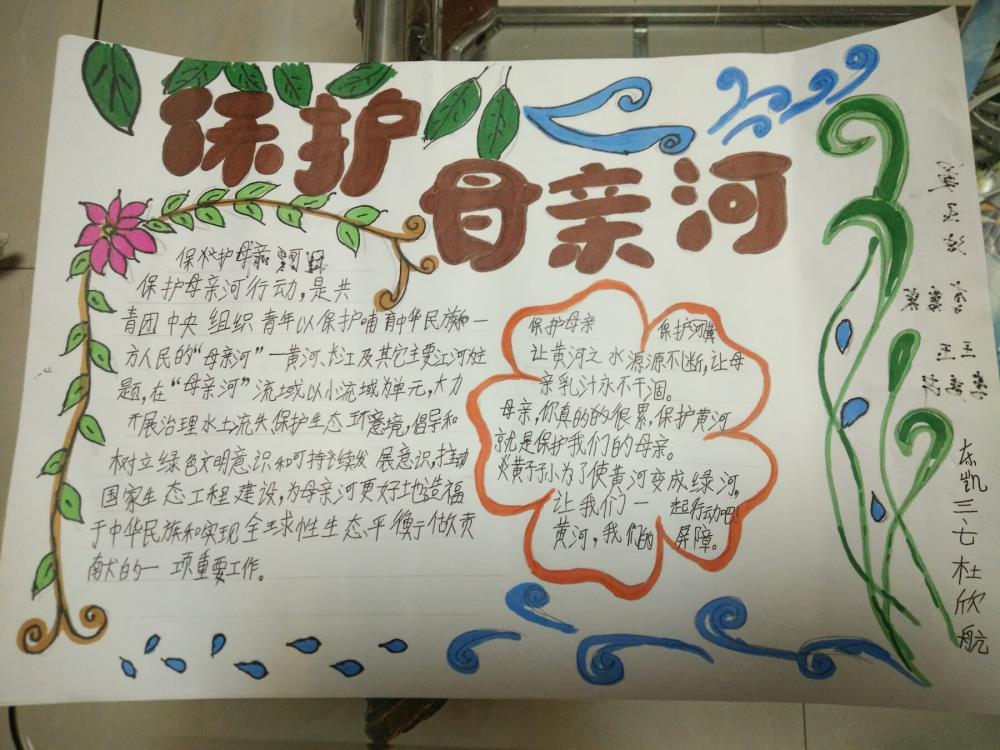 保护
母亲河
保护母亲河
保护母亲河行动,是共
青团中央组织青年以保护哺育中华民族和一
方人民的“母亲河”一黄河、长江及其它主要江河为主
题,在“母亲河”流域以小流域为单元,大力
开展治理水土流失保护生态环意境,倡导和
树立绿色文明意识和可持续发展意识,推动
国家生态工程建设,为母亲河更好地造福
于中华民族和实现全球性生态平衡于做贡
献的一项重要工作。
保护母亲 保护河
让黄河之水源源不断,让母
亲乳汁永不干涸。
母亲,你真的的很累,保护黄河
就是保护我们的母亲。
为了使黄河变成绿河,
让我们一起行动吧!
黄河,我们的屏障。
东凯三七杜欣航